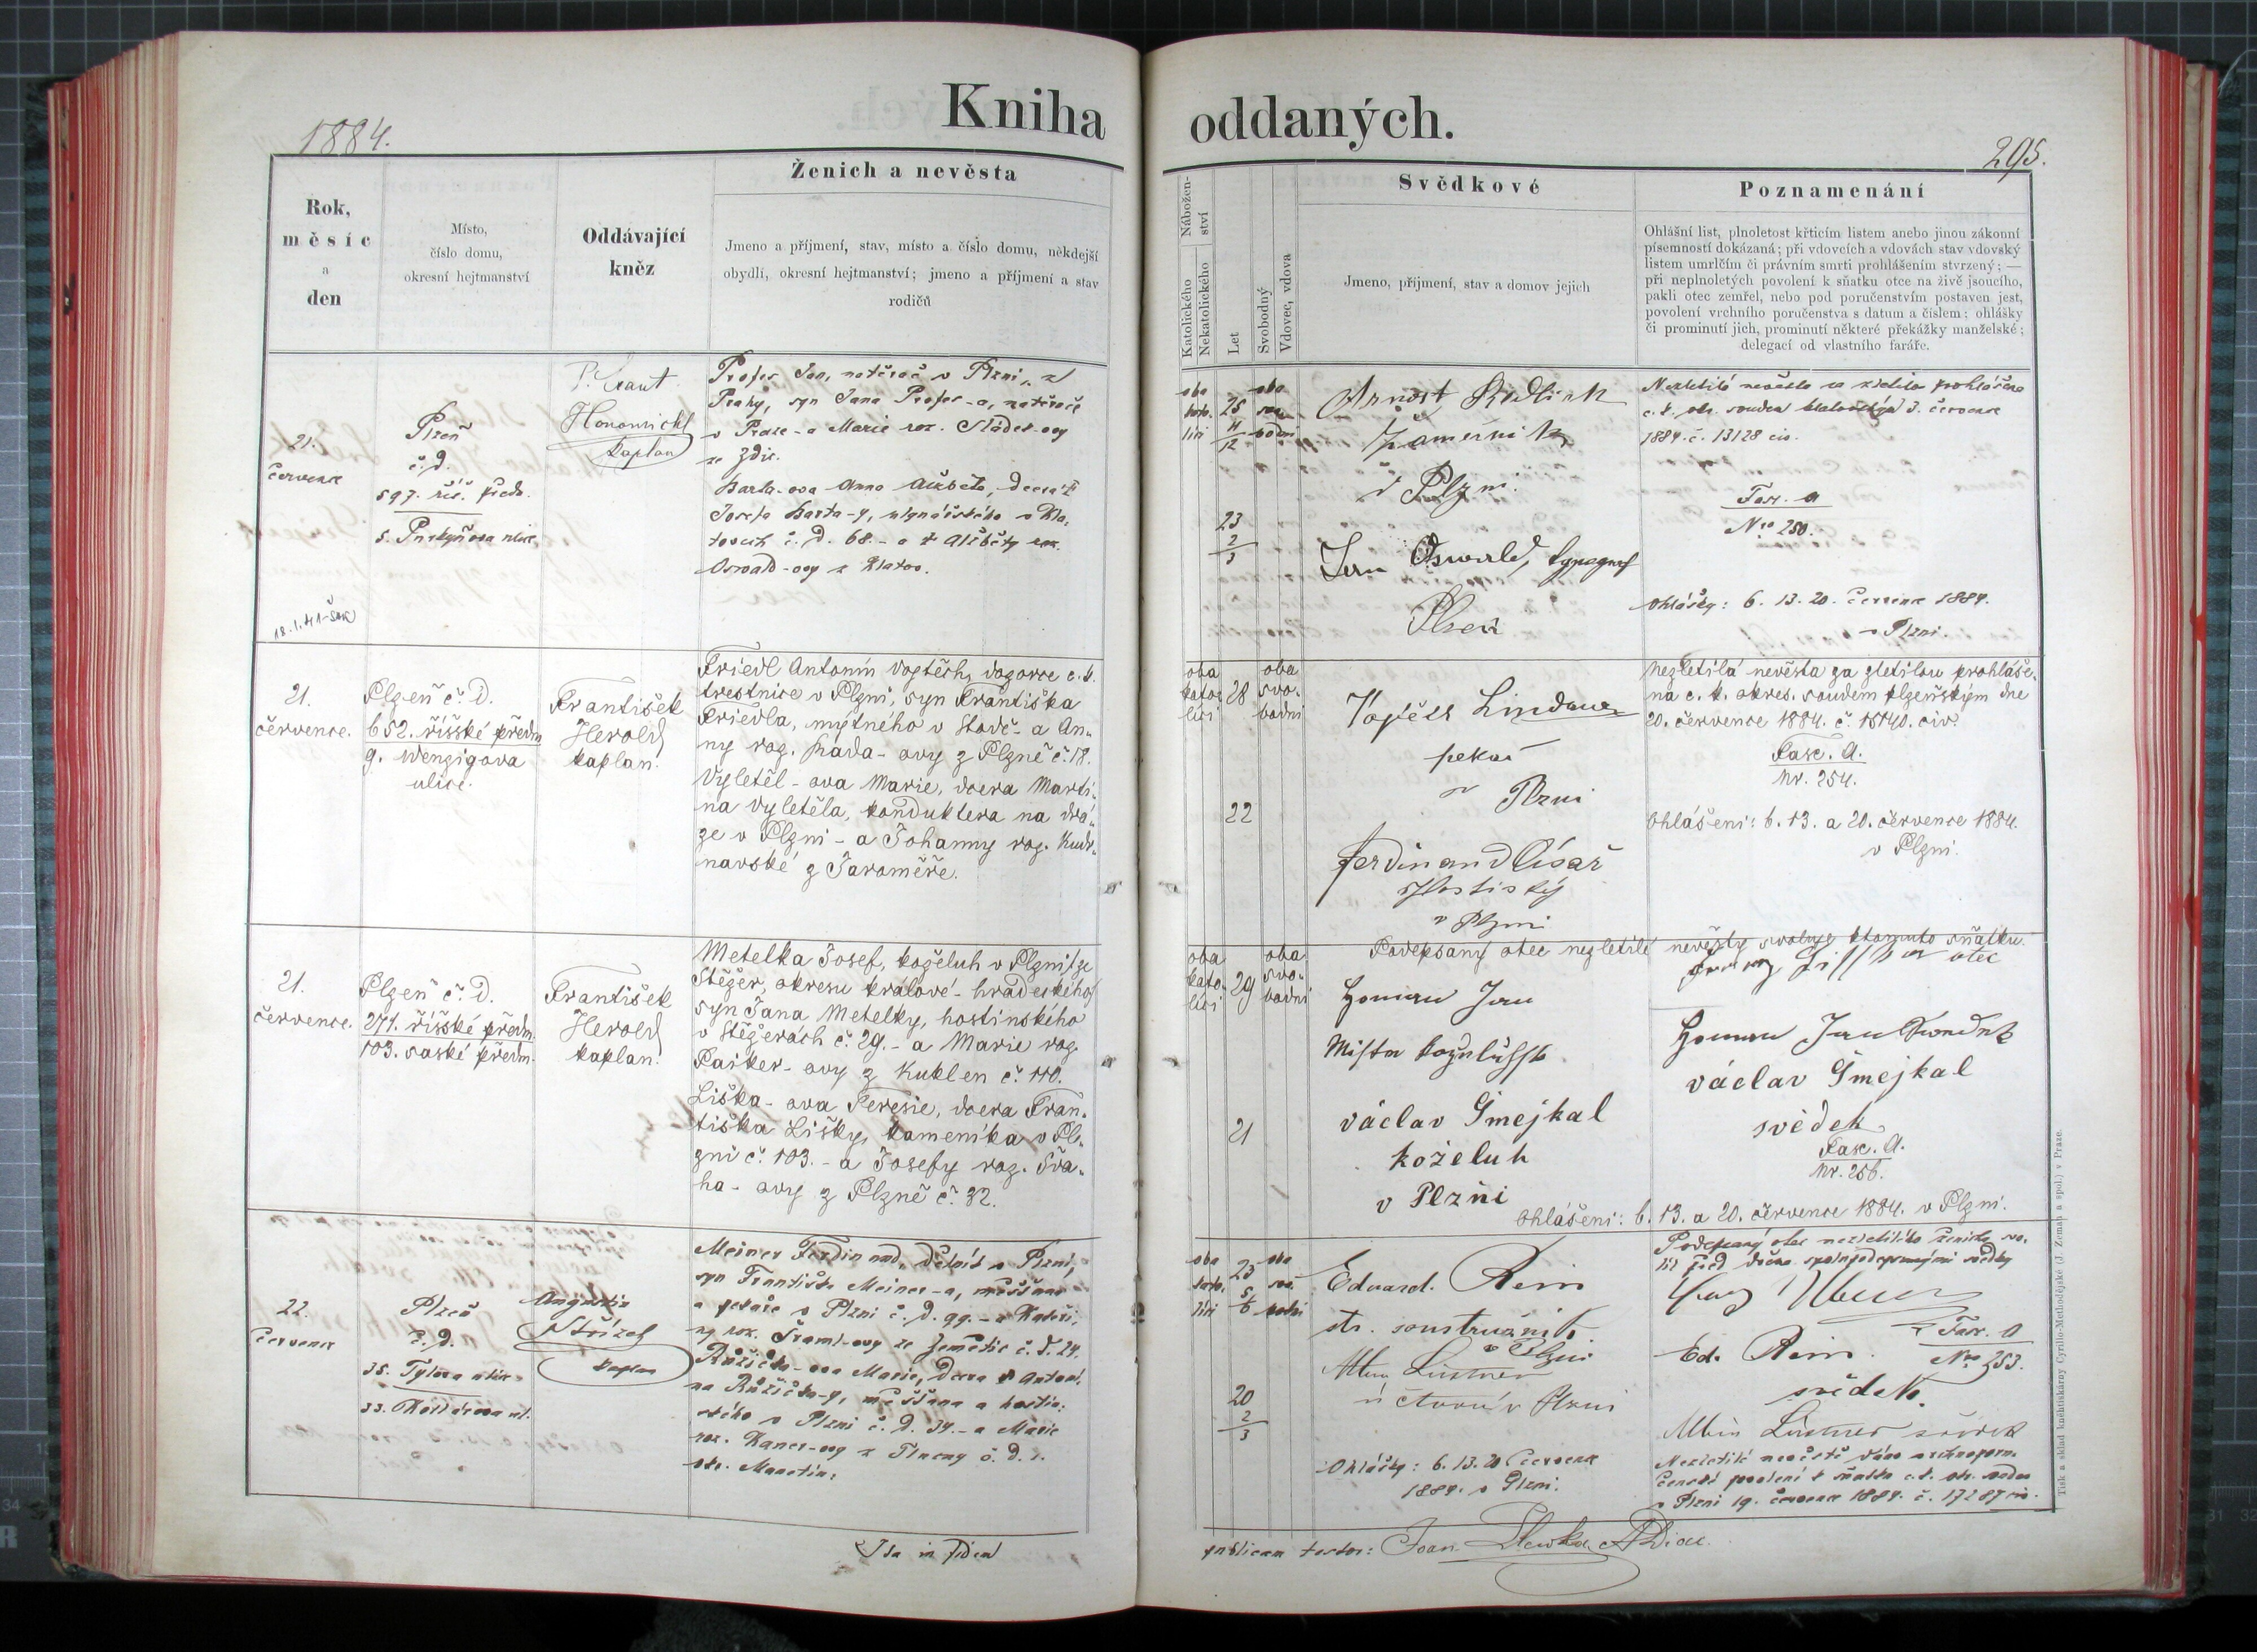 1884.
Kniha oddaných.
295.
Ženich a nevěsta
Rok,
měsíc
a
den
Místo,
číslo domu,
okresní hejtmanství
Oddávající
kněz
Jmeno a příjmení, stav, místo a číslo domu, někdejší
obydlí, okresní hejtmanství; jmeno a příjmení a stav
rodičů
Nábožen-
ství
Katolického
Nekatolického
Let
Svobodný
Vdovec, vdova
Svědkové
Jmeno, příjmení, stav a domov jejich
Poznamenání
Ohlášní list, plnoletost křticím listem anebo jinou zákonní
písemností dokázaná; při vdovcích a vdovách stav vdovský
listem umrlčím či právním smrti prohlášením stvrzený; —
při neplnoletých povolení k sňatku otce na živě jsoucího,
pakli otec zemřel, nebo pod poručenstvím postaven jest,
povolení vrchního poručenstva s datum a číslem; ohlášky
či prominutí jich, prominutí některé překážky manželské;
delegací od vlastního faráře.
21.
července
18.1.41
Plzeň
č. d.
597. říš. předm.
5. Purkyňova ulice
kaplan
Profes Jan, natěrač v Plzni, z
Prahy, syn Jana Profes-a, natěrače
v Praze - a Marie roz.
ze Zdic.
Barta-ova Anna Alžběta, dcera
Josefa Barta-y, mlynářského v Kla-
tovech č. d. 68. - a Alžběty roz.
Osvald-ovy z Klatov.
oba
kato-
líci
25
11
12
23
2
3
oba
svo-
bodni
Arnošt
Zámečník
v Plzni.
Jan Oswald, typograf
Plzeň
Nezletilá nevěsta za zletilou prohlášena
c. k. okr. soudem 3. července
1884. č. 13128 civ.
Fasc. A
Nro 250.
Ohlášky: 6. 13. 20. července 1884.
v Plzni.
21.
července.
Plzeň č. d.
652. říšské předm.
9. Wenzigova
ulice.
František
Herold
kaplan.
Friedl Antonín Vojtěch, dozorce c. k.
trestnice v Plzni, syn Františka
Friedla, mýtného v Stodě - a An-
ny roz. Kada-ovy z Plzně č. 18.
Vyletěl-ova Marie, dcera Marti-
na Vyletěla, konduktera na drá-
ze v Plzni - a Johanny roz. Kudr-
navské z Jaroměře.
oba
kato-
líci
28
22
oba
svo-
bodni
Vojtěch Lindauer
pekař
v Plzni
Ferdinand Císař
Hostiský
v Plzni
Nezletilá nevěsta za zletilou prohláše-
na c. k. okres. soudem plzeňským dne
20. července 1884. č. 15140. civ.
Fasc. A.
Nr. 254.
Ohlášeni: 6. 13. a 20. července 1884.
v Plzni.
21.
července.
Plzeň č. d.
271. říšské předm.
103. saské předm.
František
Herold
kaplan.
Metelka Josef, koželuh v Plzni ze
Stěžer, okresu králové-hradeckého,
syn Jana Metelky, hostinského
v Stěžerách č. 29. - a Marie roz.
Pasker-ovy z Kuklen č. 110.
Liška-ova Teresie, dcera Fran-
tiška Lišky, kameníka v Pl-
zni č. 103. - a Josefy roz. Svá-
ha-ovy z Plzně č. 32.
oba
kato-
líci
29
21
oba
svo-
bodni
Podepsaný otec nezletilé nevěsty svoluje ktomuto sňatku.
otec
Jan
václav Šmejkal
koželuh
v Plzni
Jan
václav Šmejkal
svědek
Fasc. A.
Nr. 256.
Ohlášeni: 6. 13. a 20. července 1884. v Plzni.
22.
července
Plzeň
č. d.
35. Tylova ulice
33. ul.
Augustin
Střízek
kaplan
Meiner Ferdinand, dělník v Plzni,
syn Františka Meiner-a, měšťana
a pekaře v Plzni č. d. 99. - a Kateři-
ny roz. ze Zemětic č. d. 24.
Růžička-ova Marie, dcera Antoní-
na Růžička-y, měšťana a hostin-
ského v Plzni č. d. 34. - a Marie
roz. z č. d. 1.
okr. Manetín.
oba
kato-
líci
23
5
6
20
2
3
oba
svo-
bodni
Eduard. Rein
str. soustružník.
v Plzni
Albin
v Plzni
Ohlášky: 6. 13. 20 července
1884. v Plzni.
Podepsaný otec nezletilého ženicha svo-
lil před spolupodepsanými svědky
Fasc. A
Nro 253.
Ed. Rein.
svědek.
Albin svědek
Nezletilé nevěstě dáno
povolení k sňatku c. k. okr. soudem
v Plzni 19. července 1884. č. 17287 civ.
Ita in fidem publicam testor: Joan.
Tisk a sklad kněhtiskárny Cyrillo-Methodějské (J. Zeman a spol.) v Praze.